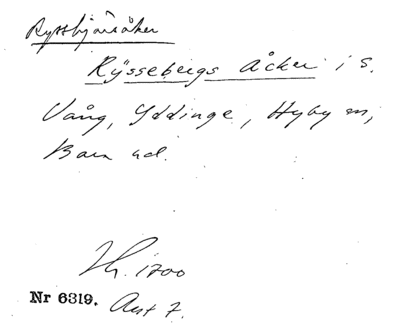 Ryssbjärsåker
Rÿssebergs Åcker i S.
Vång, Yddinge, Hyby sn,
Bara hd.
Lh. 1700
Nr 6319. Avst 7.